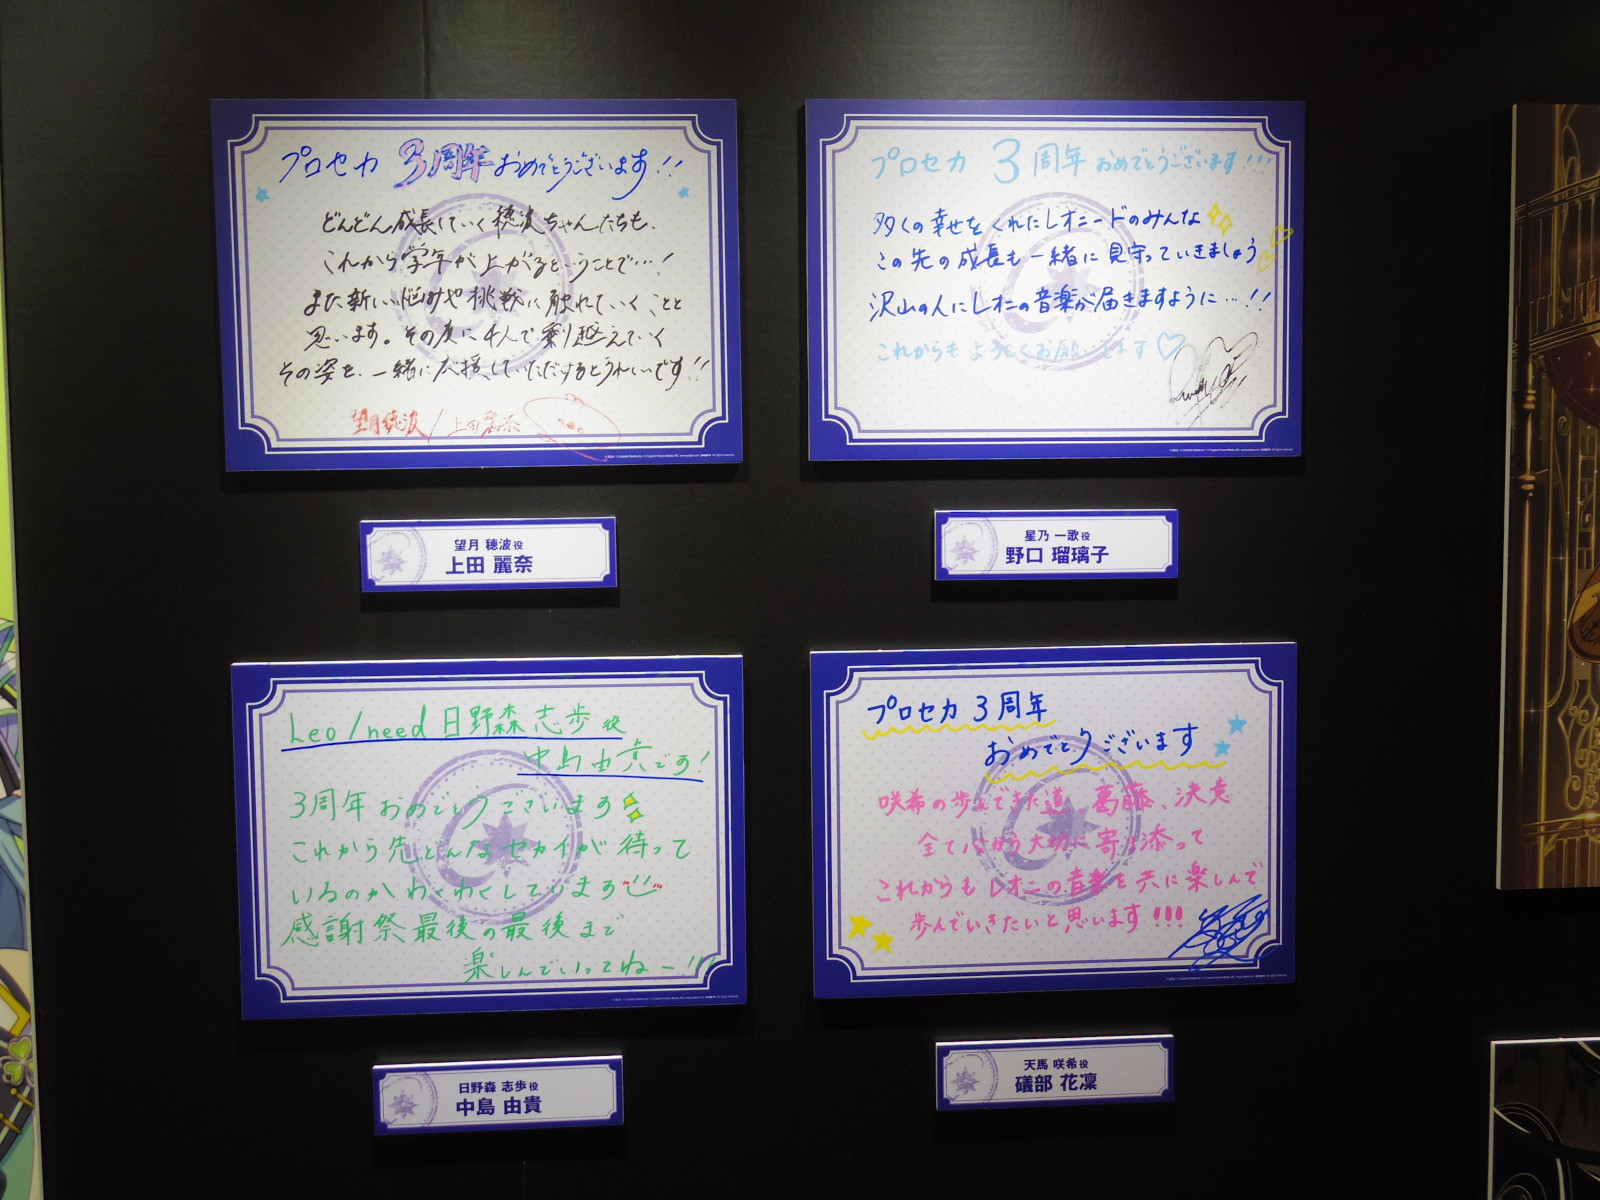 プロセカ 3周年 おめでとうございます!!
どんどん成長していく穂波ちゃんたちも、
これから学年が上がるということで…!
また新しい悩みや挑戦に触れていくことと
思います。その度に4人で乗り越えていく
その姿を、一緒に応援していただけるとうれしいです!!
望月穂波/上田麗奈
望月 穂波役
上田 麗奈
プロセカ 3周年 おめでとうございます!!!
多くの幸せをくれたレオニードのみんな
この先の成長も一緒に見守っていきましょう
沢山の人にレオニの音楽が届きますように…!!
これからもよろしくお願いします
星乃 一歌役
野口 瑠璃子
Leo/need 日野森 志歩 役
中島由貴です!
3周年おめでとうございます
これから先どんなセカイが待って
いるのかわくわくしています
感謝祭最後の最後まで
楽しんでいってねー!!!
日野森 志歩役
中島 由貴
プロセカ 3周年
おめでとうございます
咲希の歩んできた道、葛藤、決意
全て心から大切に寄り添って
これからもレオニの音楽を共に楽しんで
歩んでいきたいと思います!!!
天馬 咲希役
礒部 花凜